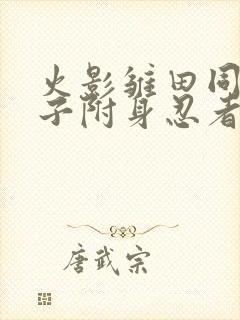 火影雏田同
子附身忍者
唐武宗